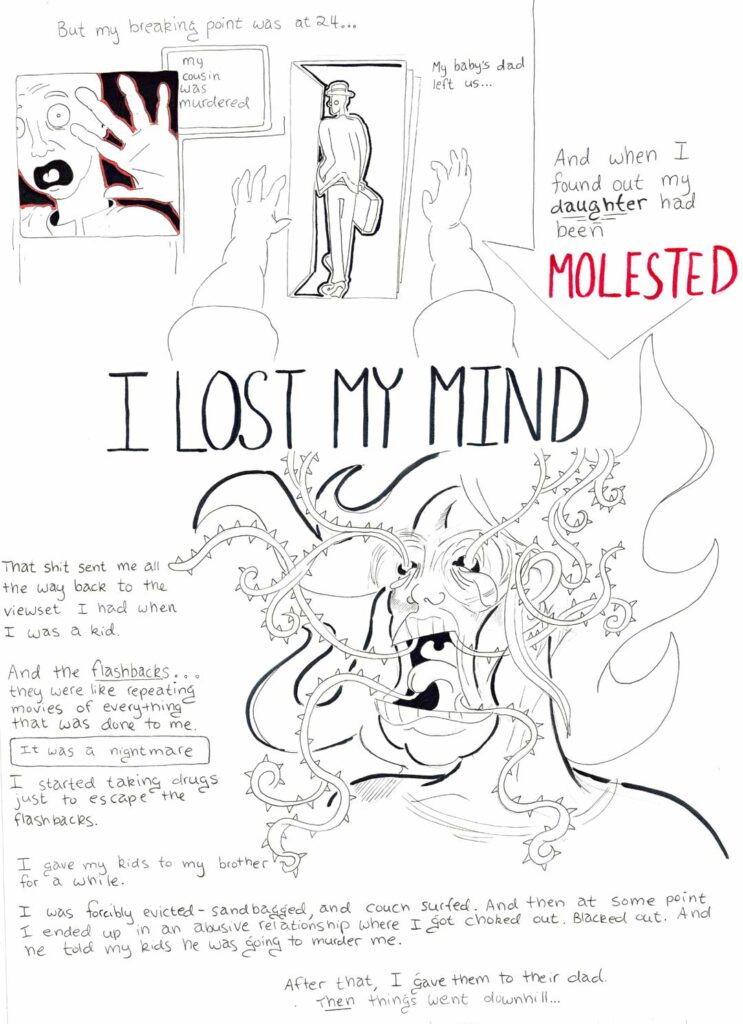 But my breaking point was at 24...
my
cousin
was
murdered
My baby's dad
left us...
And when I
found out my
daughter had
been
MOLESTED
I LOST MY MIND
That shit sent me all
the way back to the
viewset I had when
I was a kid.
And the flashbacks...
they were like repeating
movies of everything
that was done to me.
It was a nightmare
I started taking drugs
just to escape the
flashbacks.
I gave my kids to my brother
for a while.
I was forcibly evicted - sandbagged, and couch surfed. And then at some point
I ended up in an abusive relationship where I got choked out. Blacked out. And
he told my kids he was going to murder me.
After that, I gave them to their dad.
Then things went downhill...